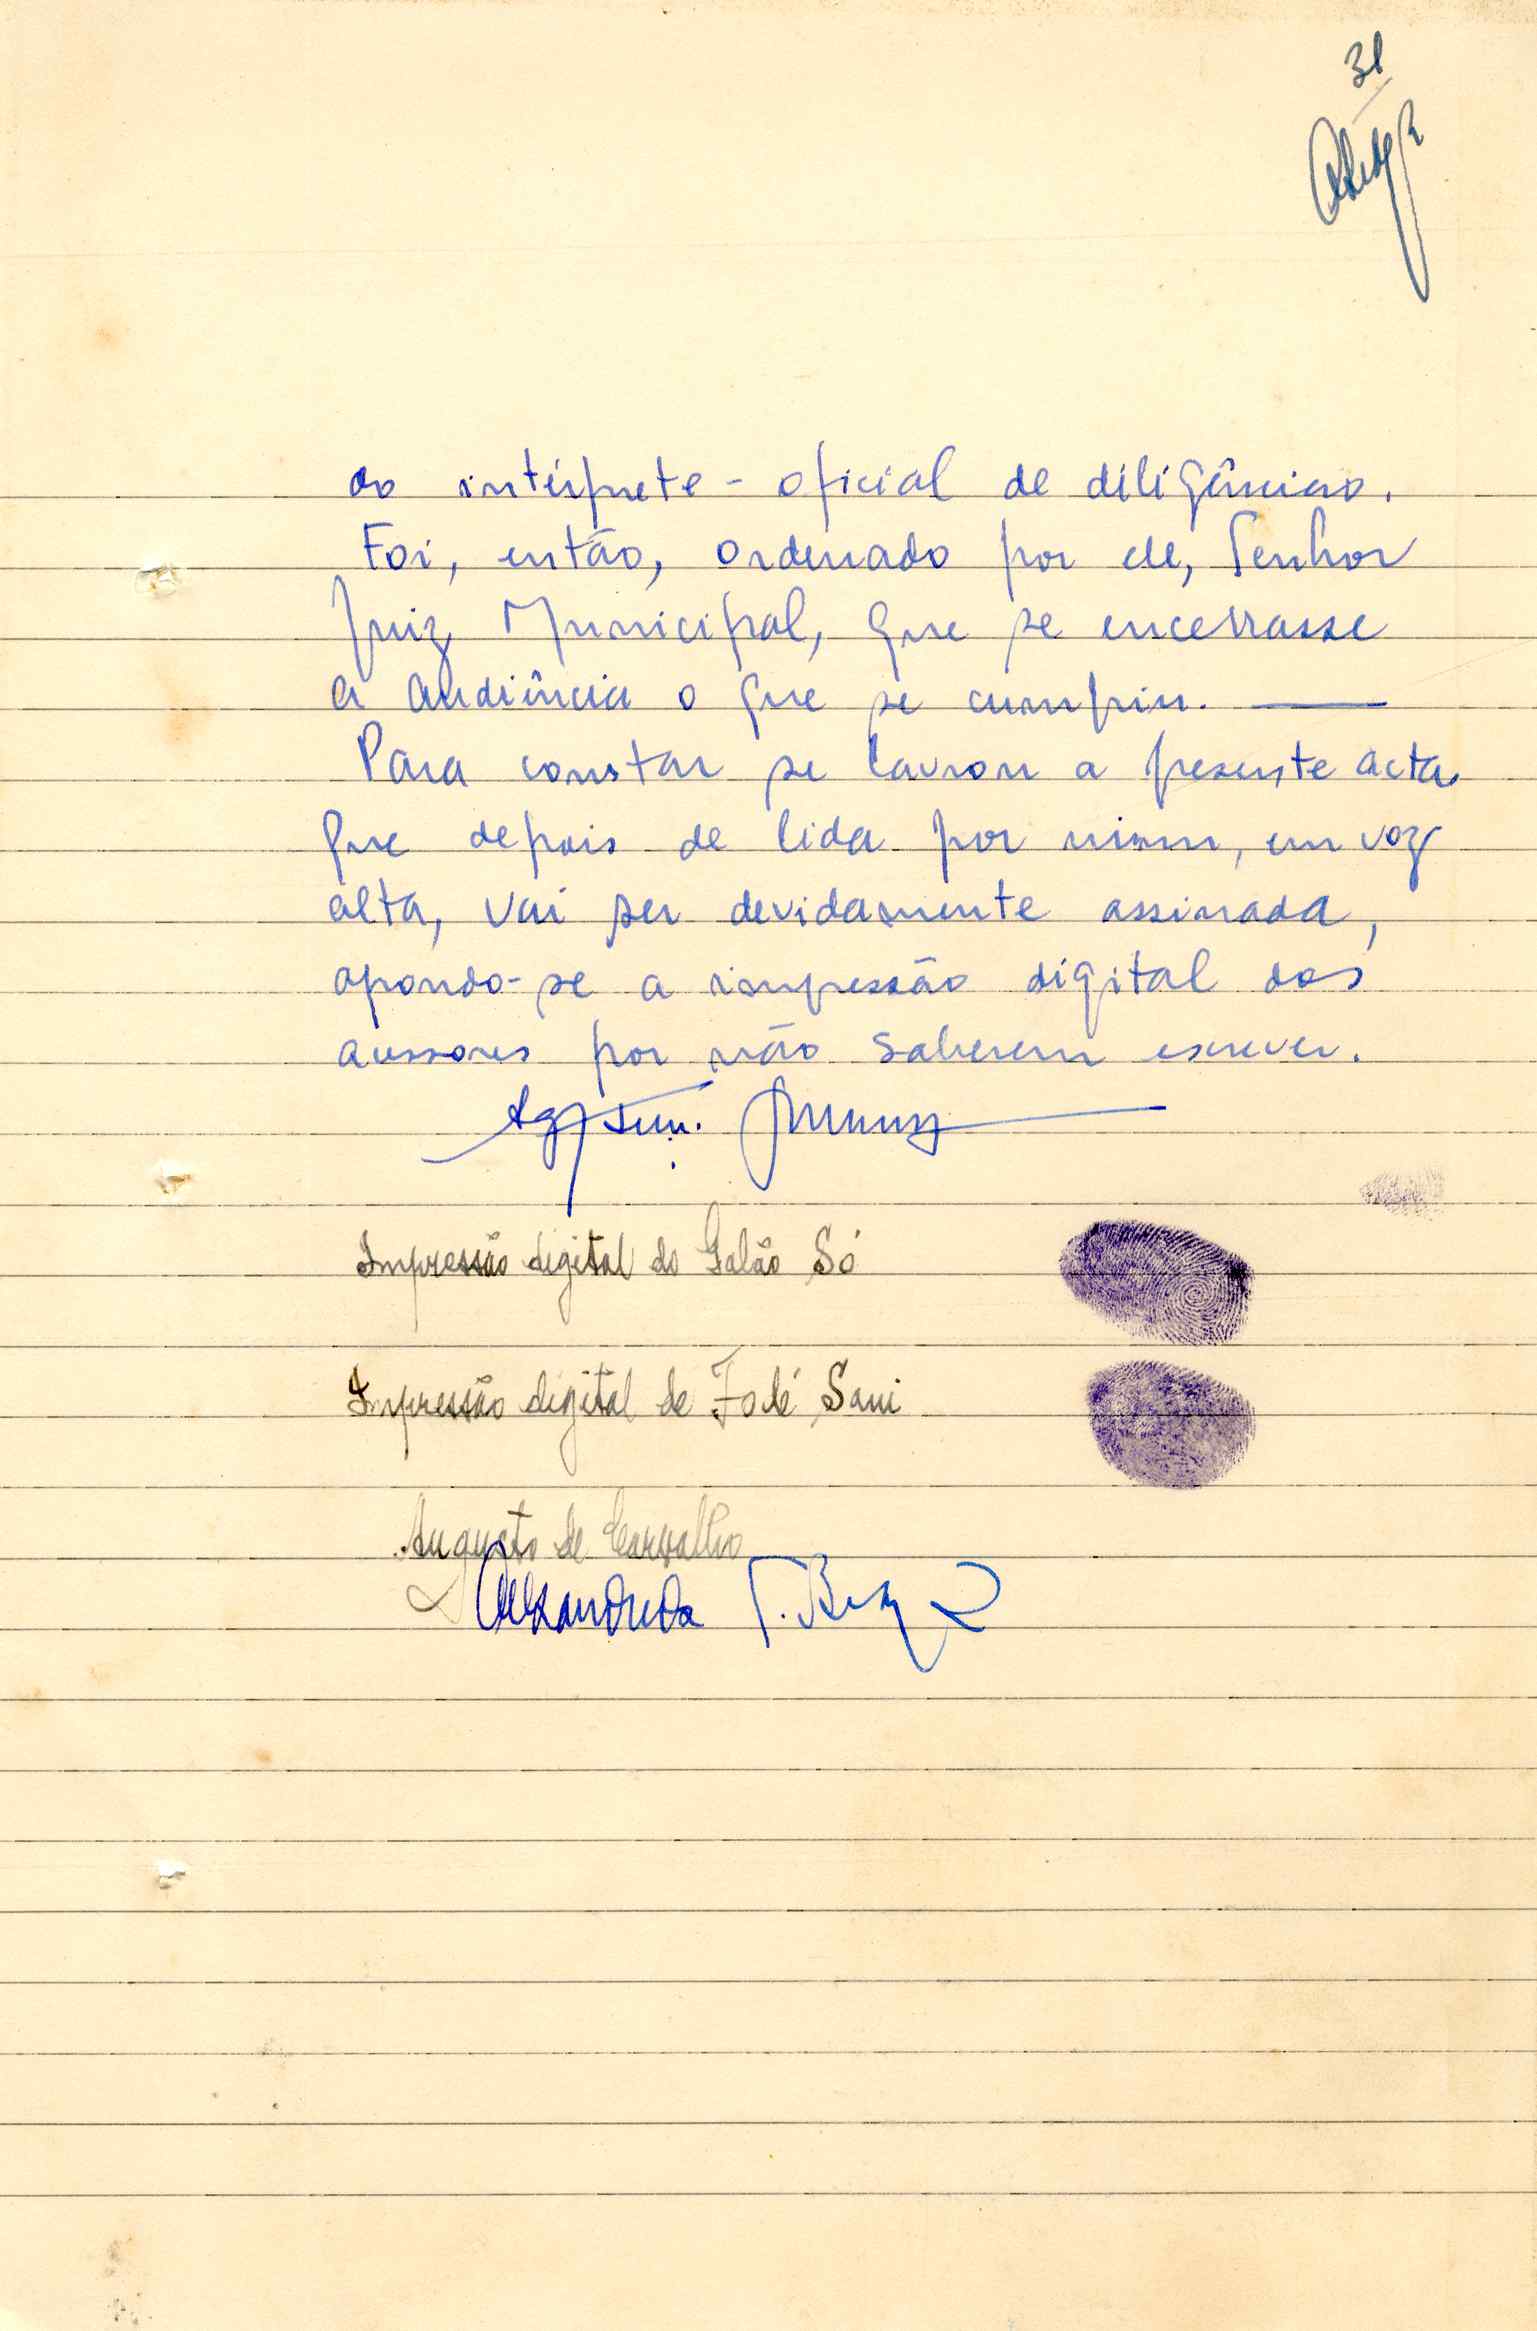 31
ao intérprete - oficial de diligências.
Foi, então, ordenado por ele, Senhor
Juiz Municipal, que se encerrasse
a audiência o que se cumpriu.
Para constar se lavrou a presente acta
que depois de lida por mim, em voz
alta, vai ser devidamente assinada,
apondo-se a impressão digital dos
acessores por não saberem escrever.
Impressão digital do Galão Só
Impressão digital de Fodé Sani
Augusto de Carvalho